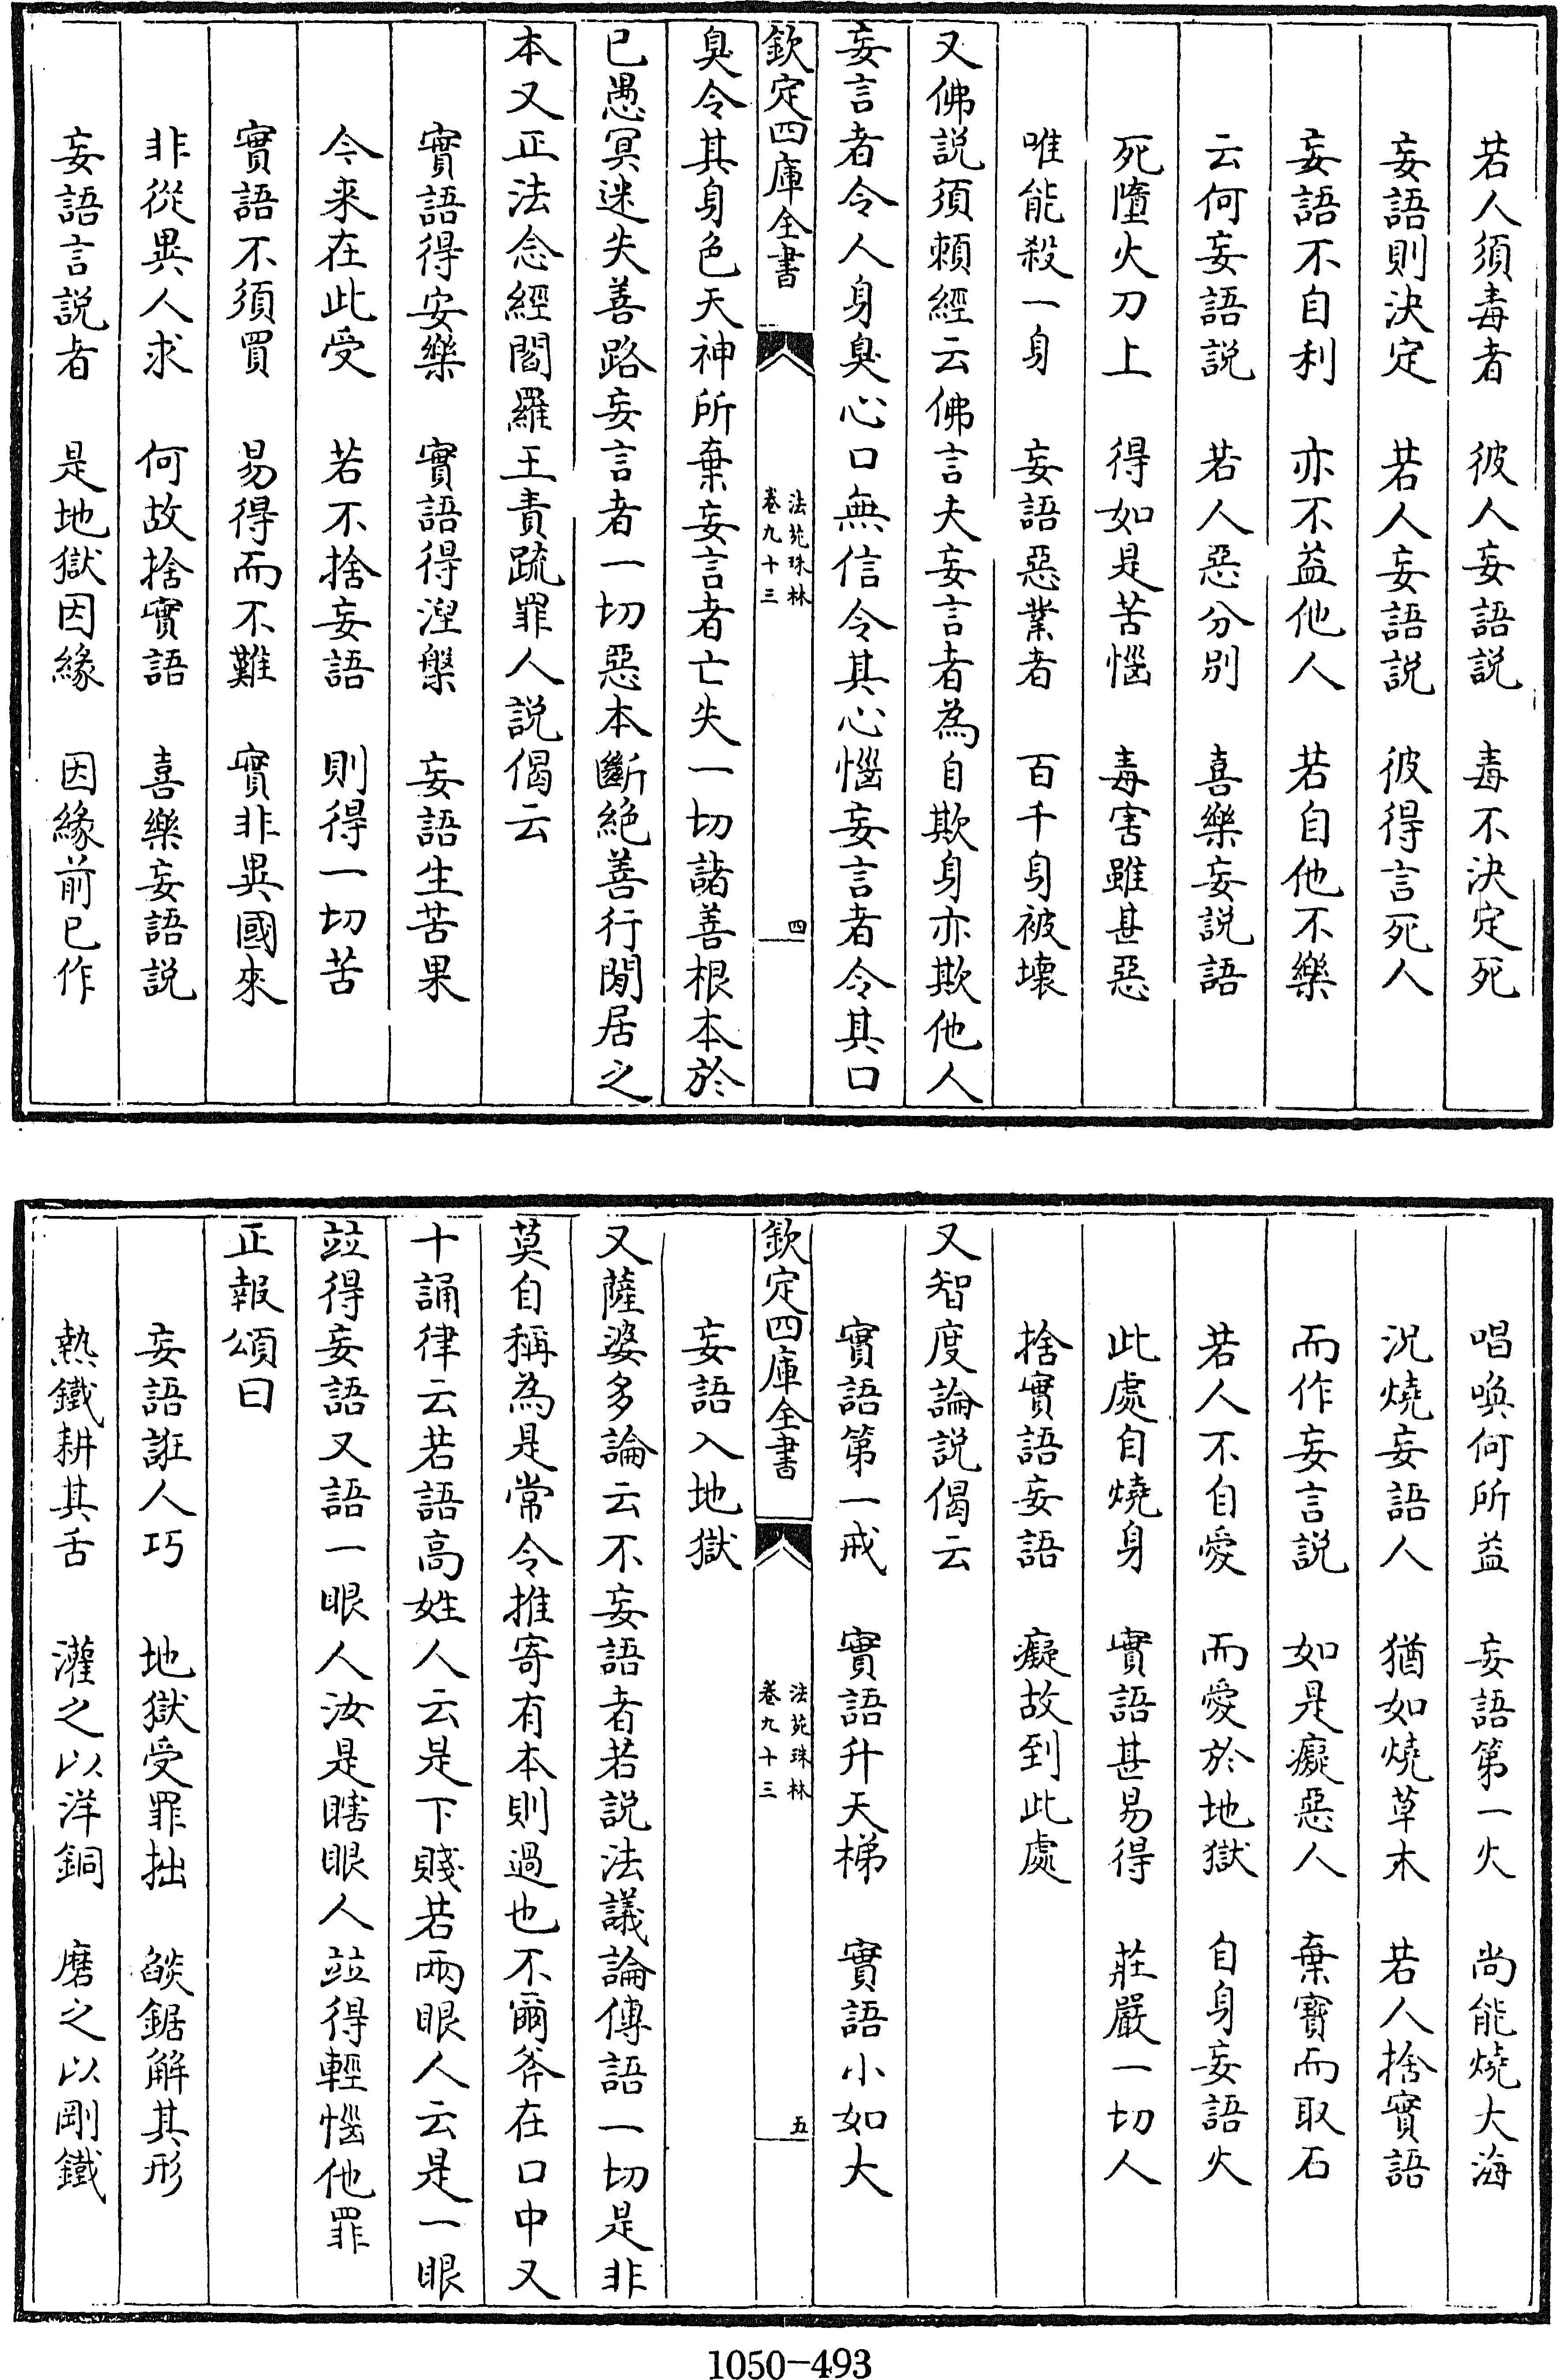 若人須毒者　彼人妄語説　毒不決定死
妄語則決定　若人妄語説　彼得言死人
妄語不自利　亦不益他人　若自他不樂
云何妄語説　若人惡分別　喜樂妄説語
死墮火刀上　得如是苦惱　毒害雖甚惡
唯能殺一身　妄語惡業者　百千身被壞
又佛説須頼經云佛言夫妄言者為自欺身亦欺他人
妄言者令人身臭心口無信令其心惱妄言者令其口
欽定四庫全書　法苑珠林卷九十三　四
臭令其身色天神所棄妄言者亡失一切諸善根本於
已愚冥迷失善路妄言者一切惡本斷絶善行閒居之
本又正法念經閻羅王責疏罪人説偈云
實語得安樂　實語得湼槃　妄語生苦果
今来在此受　若不捨妄語　則得一切苦
實語不須買　易得而不難　實非異國來
非從異人求　何故捨實語　喜樂妄語説
妄語言説者　是地獄因緣　因緣前已作
唱喚何所益　妄語第一火　尚能燒大海
況燒妄語人　猶如燒草木　若人捨實語
而作妄言説　如是癡惡人　棄寳而取石
若人不自愛　而愛於地獄　自身妄語火
此處自燒身　實語甚易得　莊嚴一切人
捨實語妄語　癡故到此處
又智度論説偈云
實語第一戒　實語升天梯　實語小如大
欽定四庫全書　法苑珠林卷九十三　五
妄語入地獄
又薩婆多論云不妄語者若説法議論傳語一切是非
莫自稱為是常令推寄有本則過也不爾斧在口中又
十誦律云若語高姓人云是下賤若兩眼人云是一眼
竝得妄語又語一眼人汝是瞎眼人竝得輕惱他罪
正報頌曰
妄語誑人巧　地獄受罪拙　燄鋸解其形
熱鐵耕其舌　灌之以洋銅　磨之以剛鐵
1050-493